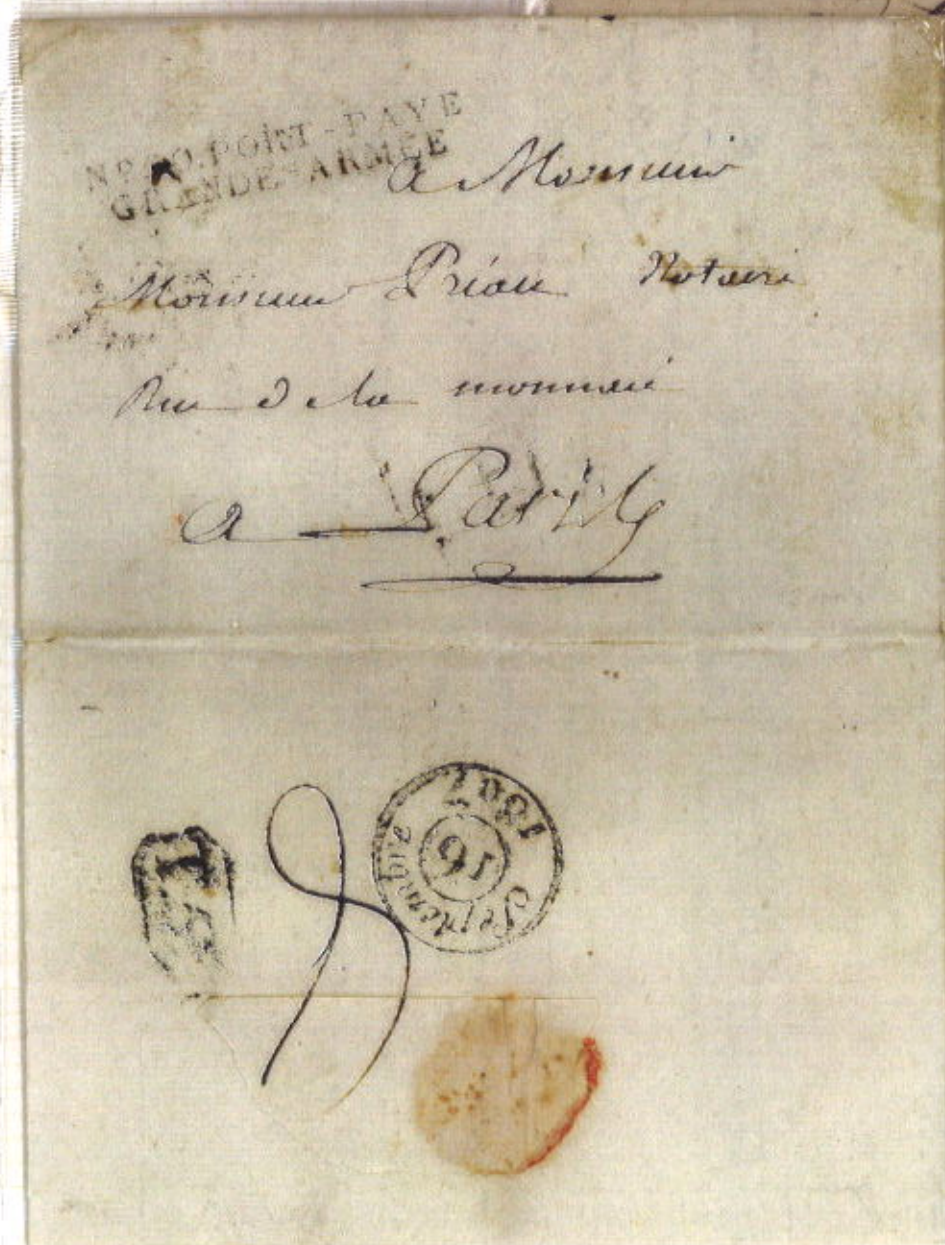 PORT-PAYÉ
GRANDE-ARMÉE
a Monsieur
Monsieur Préau Notaire
Rue de la monnaie
a Paris
Septembre
16
1807